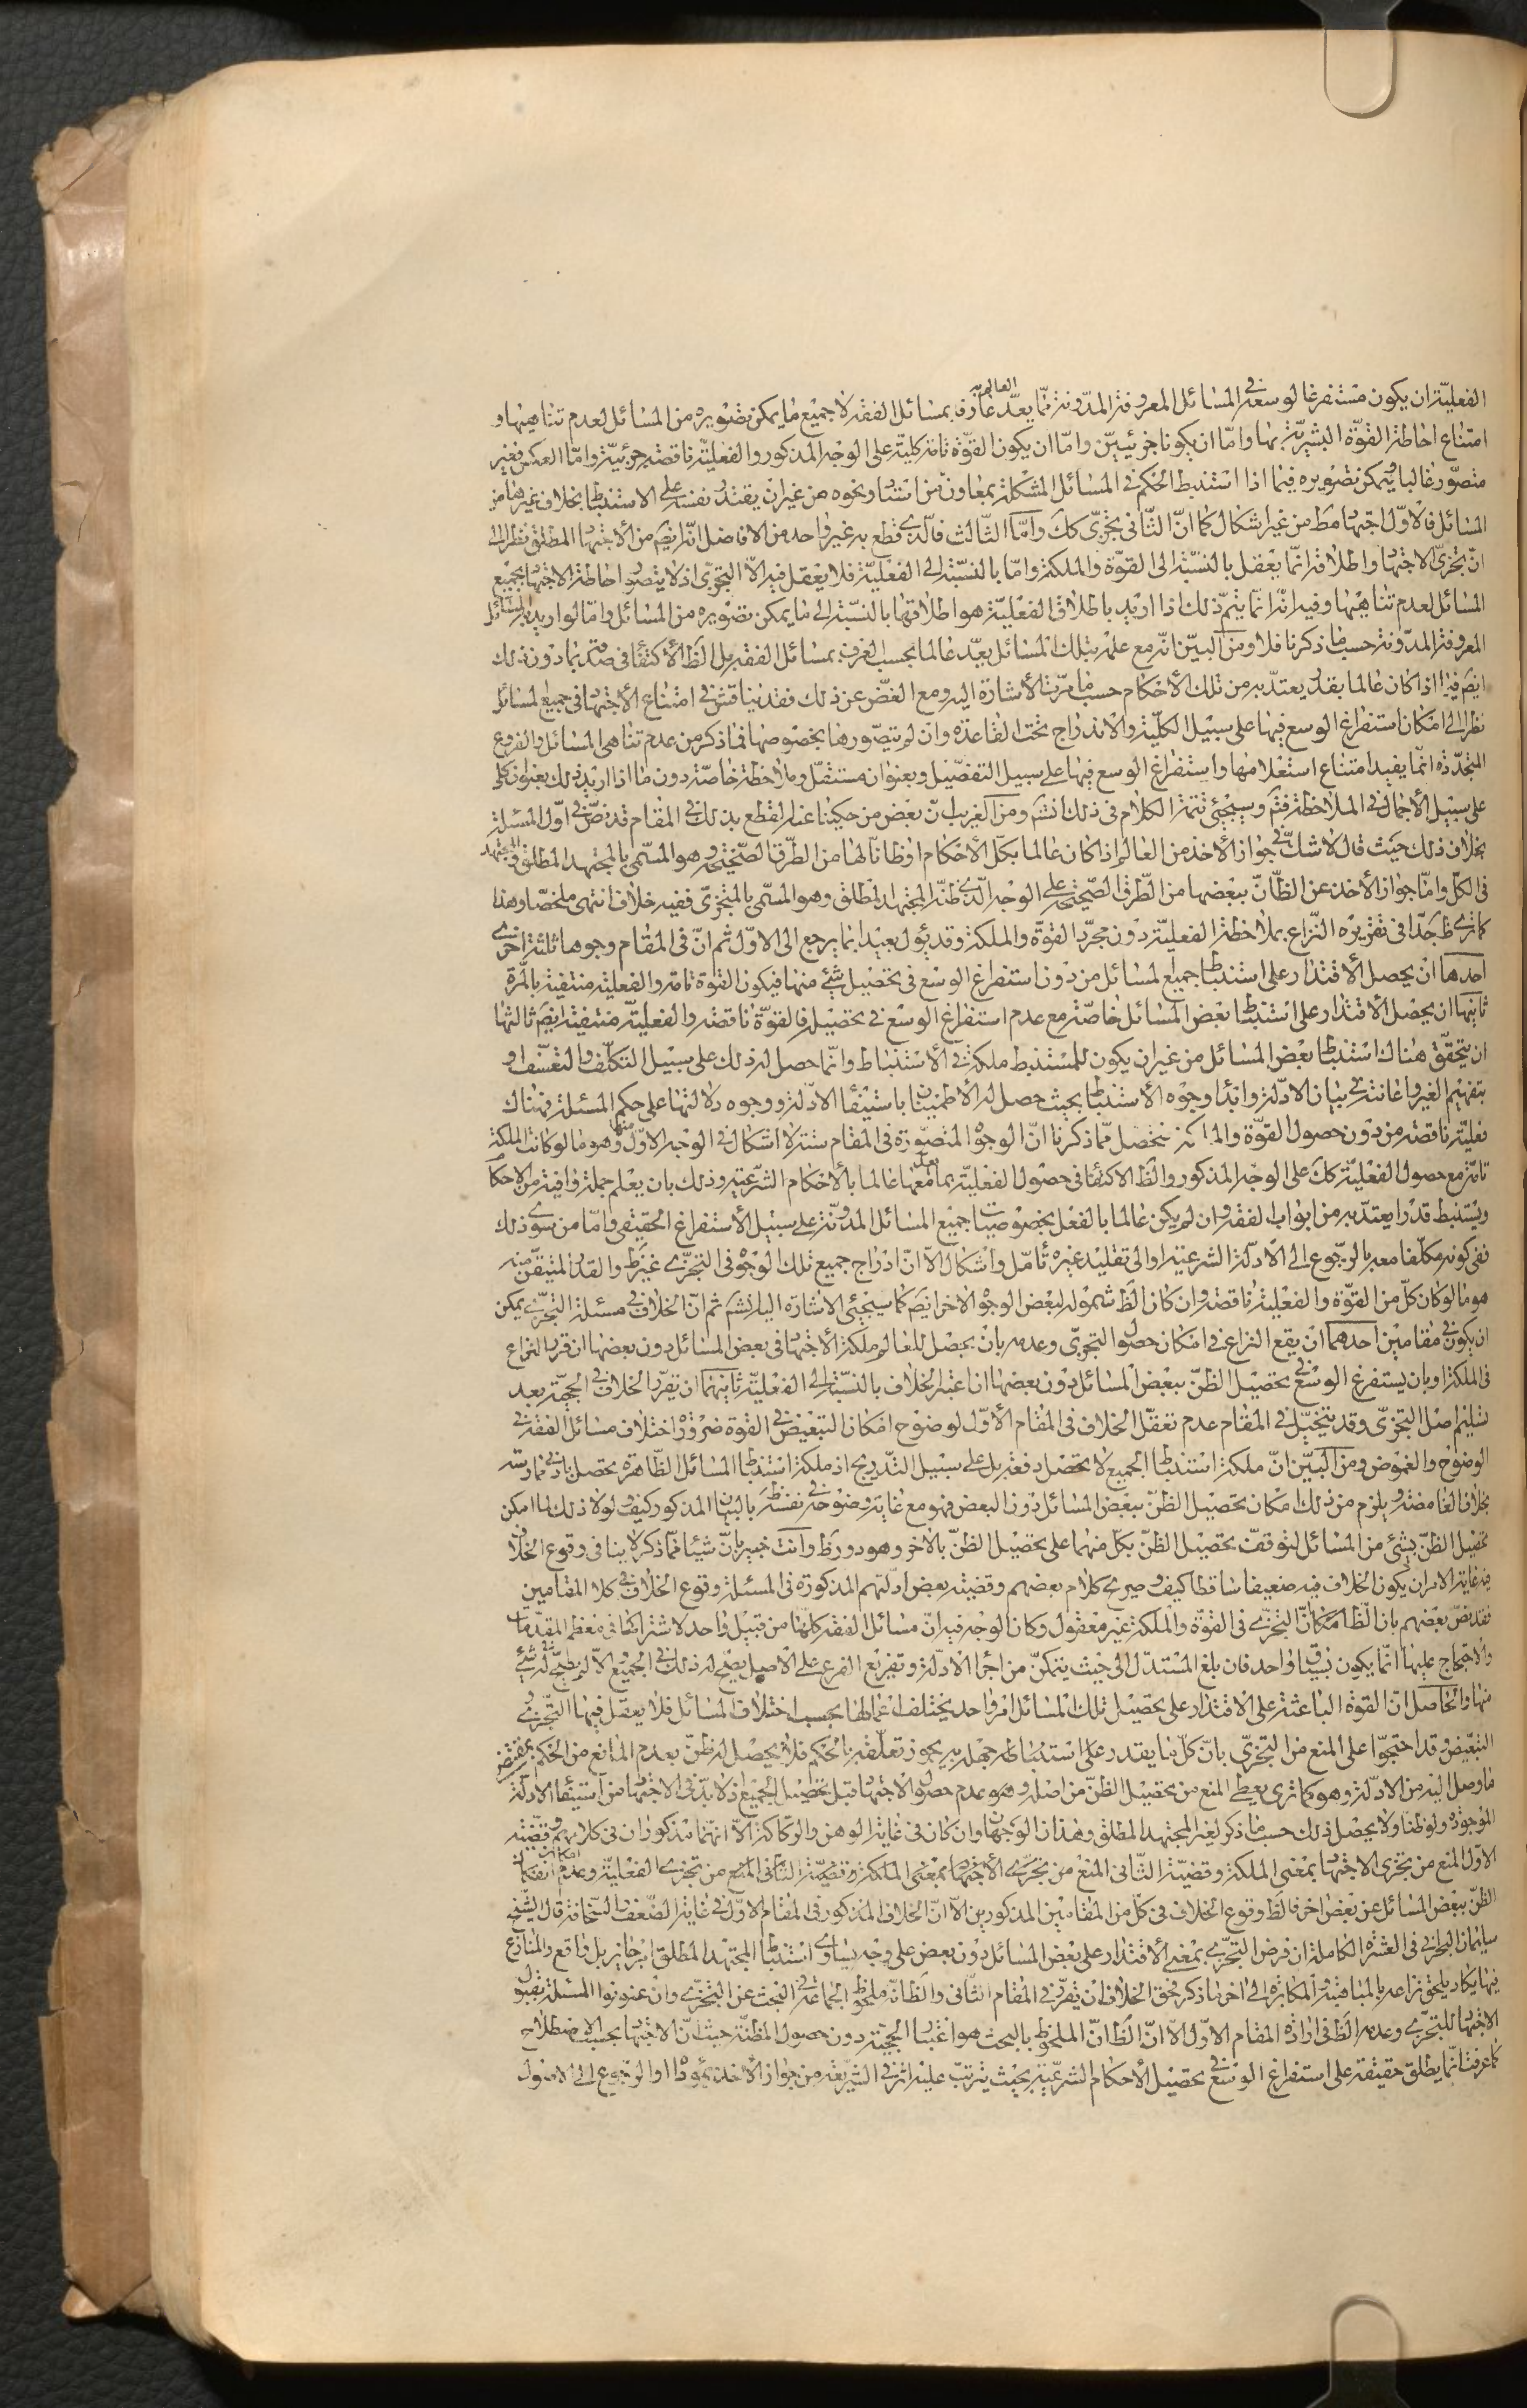 الفعليّة ان يكون مستفرغا لوسعه في المسائل المعروفة المدّونة ممّا يعدّ العالم به عارفا بمسائل الفقه لا جميع ما يمكن تصويره من المسائل لعدم تناهيها و
امتناع احاطة القوّة البشريّة بها وامّا ان يكونا جزئيين وامّا ان يكون القوّة تامة كلية على الوجه المذكور والفعليّة ناقصة جزئيّة وامّا العكس فغير
متصوّر غالبا ويمكن تصويره فيما اذا استنبط الحكم في المسائل المشكلة بمعاون من استاد ونحوه من غير ان يقتدر نفسه على الاستنباط بخلاف غيرها من
المسائل فالاوّل اجتهاد مط من غير اشكال كما انّ الثّاني تجزّى كك وامّا الثّالث فالّذي قطع به غير واحد من الافاضل انّه ايضَ من الأجتهاد المطلق نظرا الى
انّ تجزّى الاجتهاد واطلاقه انّما يعقل بالنّسبة الى القوّة والملكة وامّا بالنّسبة الى الفعليّة فلا يعقل فيه الّا التجزّى اذ لا يتصور احاطة الاجتهاد بجميع
المسائل لعدم تناهيها وفيه انّه انّما يتمّ ذلك اذا اريد باطلاق الفعليّة هو اطلاقها بالنّسبة الى ما يمكن تصويره من المسائل وامّا لو اريد به المسائل
المعروفة المدّونة حسبما ذكرنا فلا ومن البيّن انّه مع علمه بتلك المسائل يعدّ عالما بحسب العرف بمسائل الفقه بل الظَ الأكتفاء في صدقه بما دون ذلك
ايضَ فيما اذا كان عالما بقدر يعتدّ به من تلك الأحكام حسب ما مرّت الأشارة اليه ومع الغضّ عن ذلك فقد يناقش في امتناع الأجتهاد في جميع المسائل
نظرا الى امكان استفراغ الوسع فيها على سبيل الكلّية والاندراج تحت القاعدة وان لم يتصّورها بخصوصها فما ذكر من عدم تناهى المسائل والفروع
المتجدّدة انّما يفيد امتناع استعلامها واستفراغ الوسع فيها على سبيل التفصيل وبعنوان مستقلّ وملاحظة خاصّة دون ما اذا اريد ذلك بعنوان كلى
على سبيل الأجمال في الملاحظة فتمَ وسيجئي تتمة الكلام في ذلك انشَ ومن الغريب انّ بعض من حكينا عنه القطع بذلك في المقام قد نصّ في اوّل المسئلة
بخلاف ذلك حيث قال لا شكّ في جواز الأخذ من العالم اذا كان عالما بكلّ الأحكام او ظانّا لها من الطّرق الصّحيحة وهو المسّمى بالمجتهد المطلق والمجتهد
في الكلّ وامّا جواز الأخذ عن الظّانّ ببعضها من الطّرق الصّحيحة على الوجه الّذي ظنّه المجتهد المطلق وهو المسّمى بالمتجزّى ففيه خلاف انتهى ملخصّا وهذا
كما ترى ظ جدّا في تقريره النّزاع بملاحظة الفعليّة دون مجرّد القوّة والملكة وقد يئول بعيدا بما يرجع الى الاوّل ثم انّ في المقام وجوها ثلثة اخرى
احدها ان يحصل الأقتدار على استنباط جميع المسائل من دون استفراغ الوسع في تحصيل شئ منها فيكون القوة تامة والفعلية منتفية بالمرة
ثانيها ان يحصل الأقتدار على استنباط بعض المسائل خاصّة مع عدم استفراغ الوسع في تحصيله فالقوّة ناقصة والفعليّة منتفية ايضَ ثالثها
ان يتحقّق هناك استنباط بعض المسائل من غير ان يكون للمستنبط ملكة في الأستنباط وانّما حصل له ذلك على سبيل التكلّف والتعسّف او
بتفهيم الغير واعانته في بيان الادّلة وابداء وجوه الأستنباط بحيث حصل له الأطمينان باستيفاء الادّلة ووجوه دلالتها على حكم المسئلة فهناك
فعلية ناقصة من دون حصول القوّة والملكة فتحصّل ممّا ذكرنا انّ الوجوه المتصّورة في المقام ستة لا اشكال في الوجه الاوّل منها وهو ما لو كانت الملكة
تامة مع حصول الفعليّة كك على الوجه المذكور والظَ الاكتفاء في حصول الفعليّة بما يعدّ معها عالما بالأحكام الشّرعيّة وذلك بان يعلم جملة وافية من الاحكام
ويستنبط قدرا يعتدّ به من ابواب الفقه وان لم يكن عالما بالفعل بخصوصيات جميع المسائل المدّونة على سبيل الأستفراغ الحقيقي وامّا من سوى ذلك
ففي كونه مكلّفا معه بالرّجوع الى الأدلّة الشرعية او الى تقليد غيره تأمّل واشكال الّا انّ ادراج جميع تلك الوجوه في التجزّي غير ظ والقدر المتيقّن منه
هو ما لو كان كلّ من القوّة والفعلية ناقصة وان كان الظَ شموله لبعض الوجوه الأخر ايضَ كما سيجئي الاشارة اليه انشَ ثم انّ الخلاف في مسئلة التجزّى يمكن
ان يكون في مقامين احدهما ان يقع النزاع في امكان حصول التجزّى وعدمه بان يحصل للعالم ملكة الأجتهاد في بعض المسائل دون بعضها ان قرر النزاع
في الملكة او بان يستفرغ الوسع في تحصيل الظنّ ببعض المسائل دون بعضها ان اعتبر الخلاف بالنّسبة الى الفعليّة ثانيهما ان تقرّر الخلاف في الحجيّة بعد
تسليم اصل التجزّى وقد يتخيّل في المقام عدم تعقّل الخلاف في المقام الأوّل لوضوح امكان التبعيض في القوة ضرورة اختلاف مسائل الفقه في
الوضوح والغموض ومن البيّن انّ ملكة استنباط الجميع لا تحصل دفعة بل على سبيل التّدريج اذ ملكة استنباط المسائل الظّاهرة يحصل بادنى ممارسة
بخلاف الغامضة ويلزم من ذلك امكان تحصيل الظنّ ببعض المسائل دون البعض فهو مع غاية وضوحه في نفسه ظَ بالبيان المذكور كيف ولولا ذلك لما امكن
تحصيل الظنّ بشئ من المسائل لتوقفّ تحصيل الظنّ بكلّ منهما على تحصيل الظنّ بالآخر وهو دور ظ وانت خبير بانّ شيئا ممّا ذكر لا ينافى وقوع الخلاف
فيه غاية الامر ان يكون الخلاف فيه ضعيفا ساقطا كيف وصريح كلام بعضهم وقضية بعض ادلّتهم المذكورة في المسئلة وقوع الخلاف في كلا المقامين
فقد نصّ بعضهم بانّ الظّ امكان التجزّى في القوّة والملكة غير معقول وكان الوجه فيه انّ مسائل الفقه كلّها من قبيل واحد لاشتراكها في معظم المقدّمات
والاحتجاج عليها انّما يكون بسياق واحد فان بلغ المستدلّ الى حيث يتمكّن من اجراء الادلّة وتفريع الفرع على الاصل يصّح له ذلك في الجميع والّا لم يصّح له في شئ
منها والحاصل انّ القوة الباعثة على الاقتدار على تحصيل تلك المسائل امر واحد يختلف اعمالها بحسب اختلاف المسائل فلا يعقل فيها التّجزى و
التبعيّض وقد احتجوّا على المنع من التجزّى بانّ كلّما يقدر على استنباطه جهله به يجوز تعلّقه بالحكم فلا يحصل له ظنّ بعدم المانع من الحكم بمقتضى
ما وصل اليه من الادلّة وهو كما ترى يعطى المنع من تحصيل الظنّ من اصله وهو عدم حصول الاجتهاد قبل تحصيل الجميع اذ لا بدّ في الاجتهاد من استيفاء الادلّة
الموجودة ولو ظنّا ولا يحصل ذلك حسب ما ذكر لغير المجتهد المطلق وهذان الوجهان وان كان في غاية الوهن والركاكة الّا انّهما مذكوران في كلامهم وقضيّة
الاوّل المنع من تجزّى الاجتهاد بمعنى الملكة وقضيّة الثّاني المنع من تجزّى الأجتهاد بمعنى الملكة وقضيّة الثّاني المنع من تجزى الفعليّة وعدم امكان انفكاك
الظنّ ببعض المسائل عن بعض اخر فالظَ وقوع الخلاف في كلّ من المقامين المذكورين الّا انّ الخلاف المذكور في المقام الاوّل في غاية الضّعف والسّخافة قال الشّيخ
سليمان البحراني في العشرة الكاملة ان فرض التّجزّى بمعنى الأقتدار على بعض المسائل دون بعض على وجه يساوى استنباط المجتهد المطلق امر جايز بل واقع والمنازع
فيها يكاد يلحق نزاعه بالمباهتة والمكابرة الى اخر ما ذكر فحق الخلاف ان يقرّر في المقام الثّاني والظَ انّه ملحوظ الجماعة في البحث عن التجزّى وان عنونوا المسئلة بقبول
الاجتهاد للتجزّى وعدمه الظَ في ارادة المقام الاوّل الّا انّ الظَ انّ الملحوظ بالبحث هو اعتبار الحجيّة دون حصول المظنّة حيث انّ الاجتهاد بحسب الاصطلاح
كما عرفت انّما يطلق حقيقة على استفراغ الوسع في تحصيل الأحكام الشّرعيّة بحيث يترتّب عليه اثر في الشّريعة من جواز الأخذ بمؤدّاه او الرّجوع الى الاصول